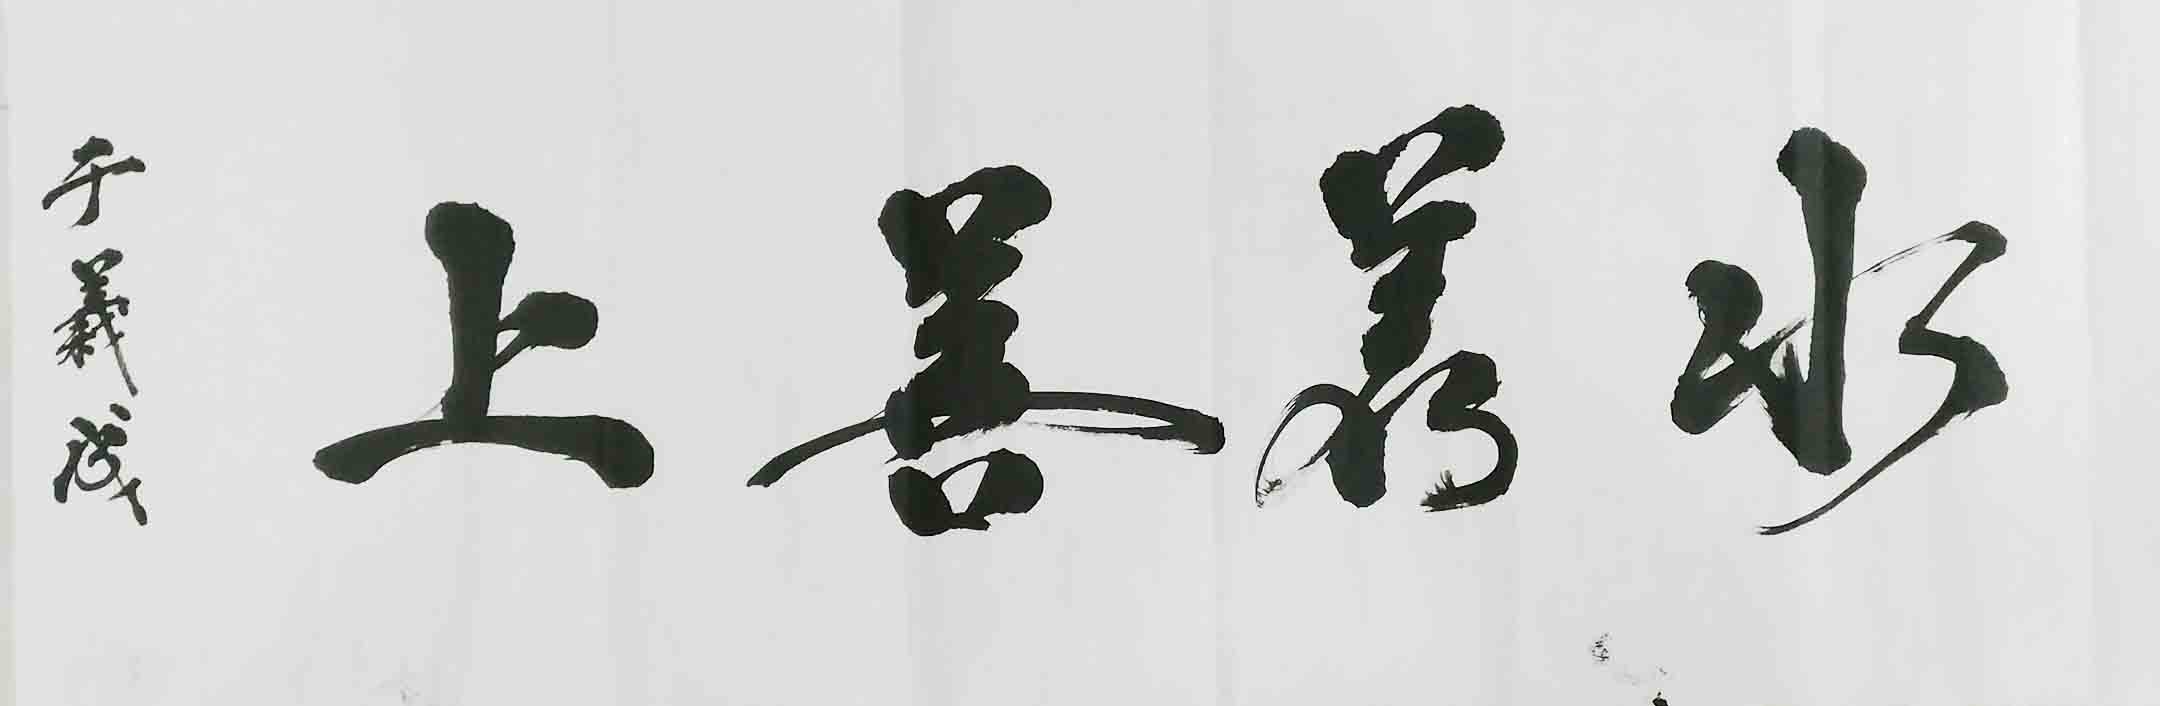 上善若水
于義茂